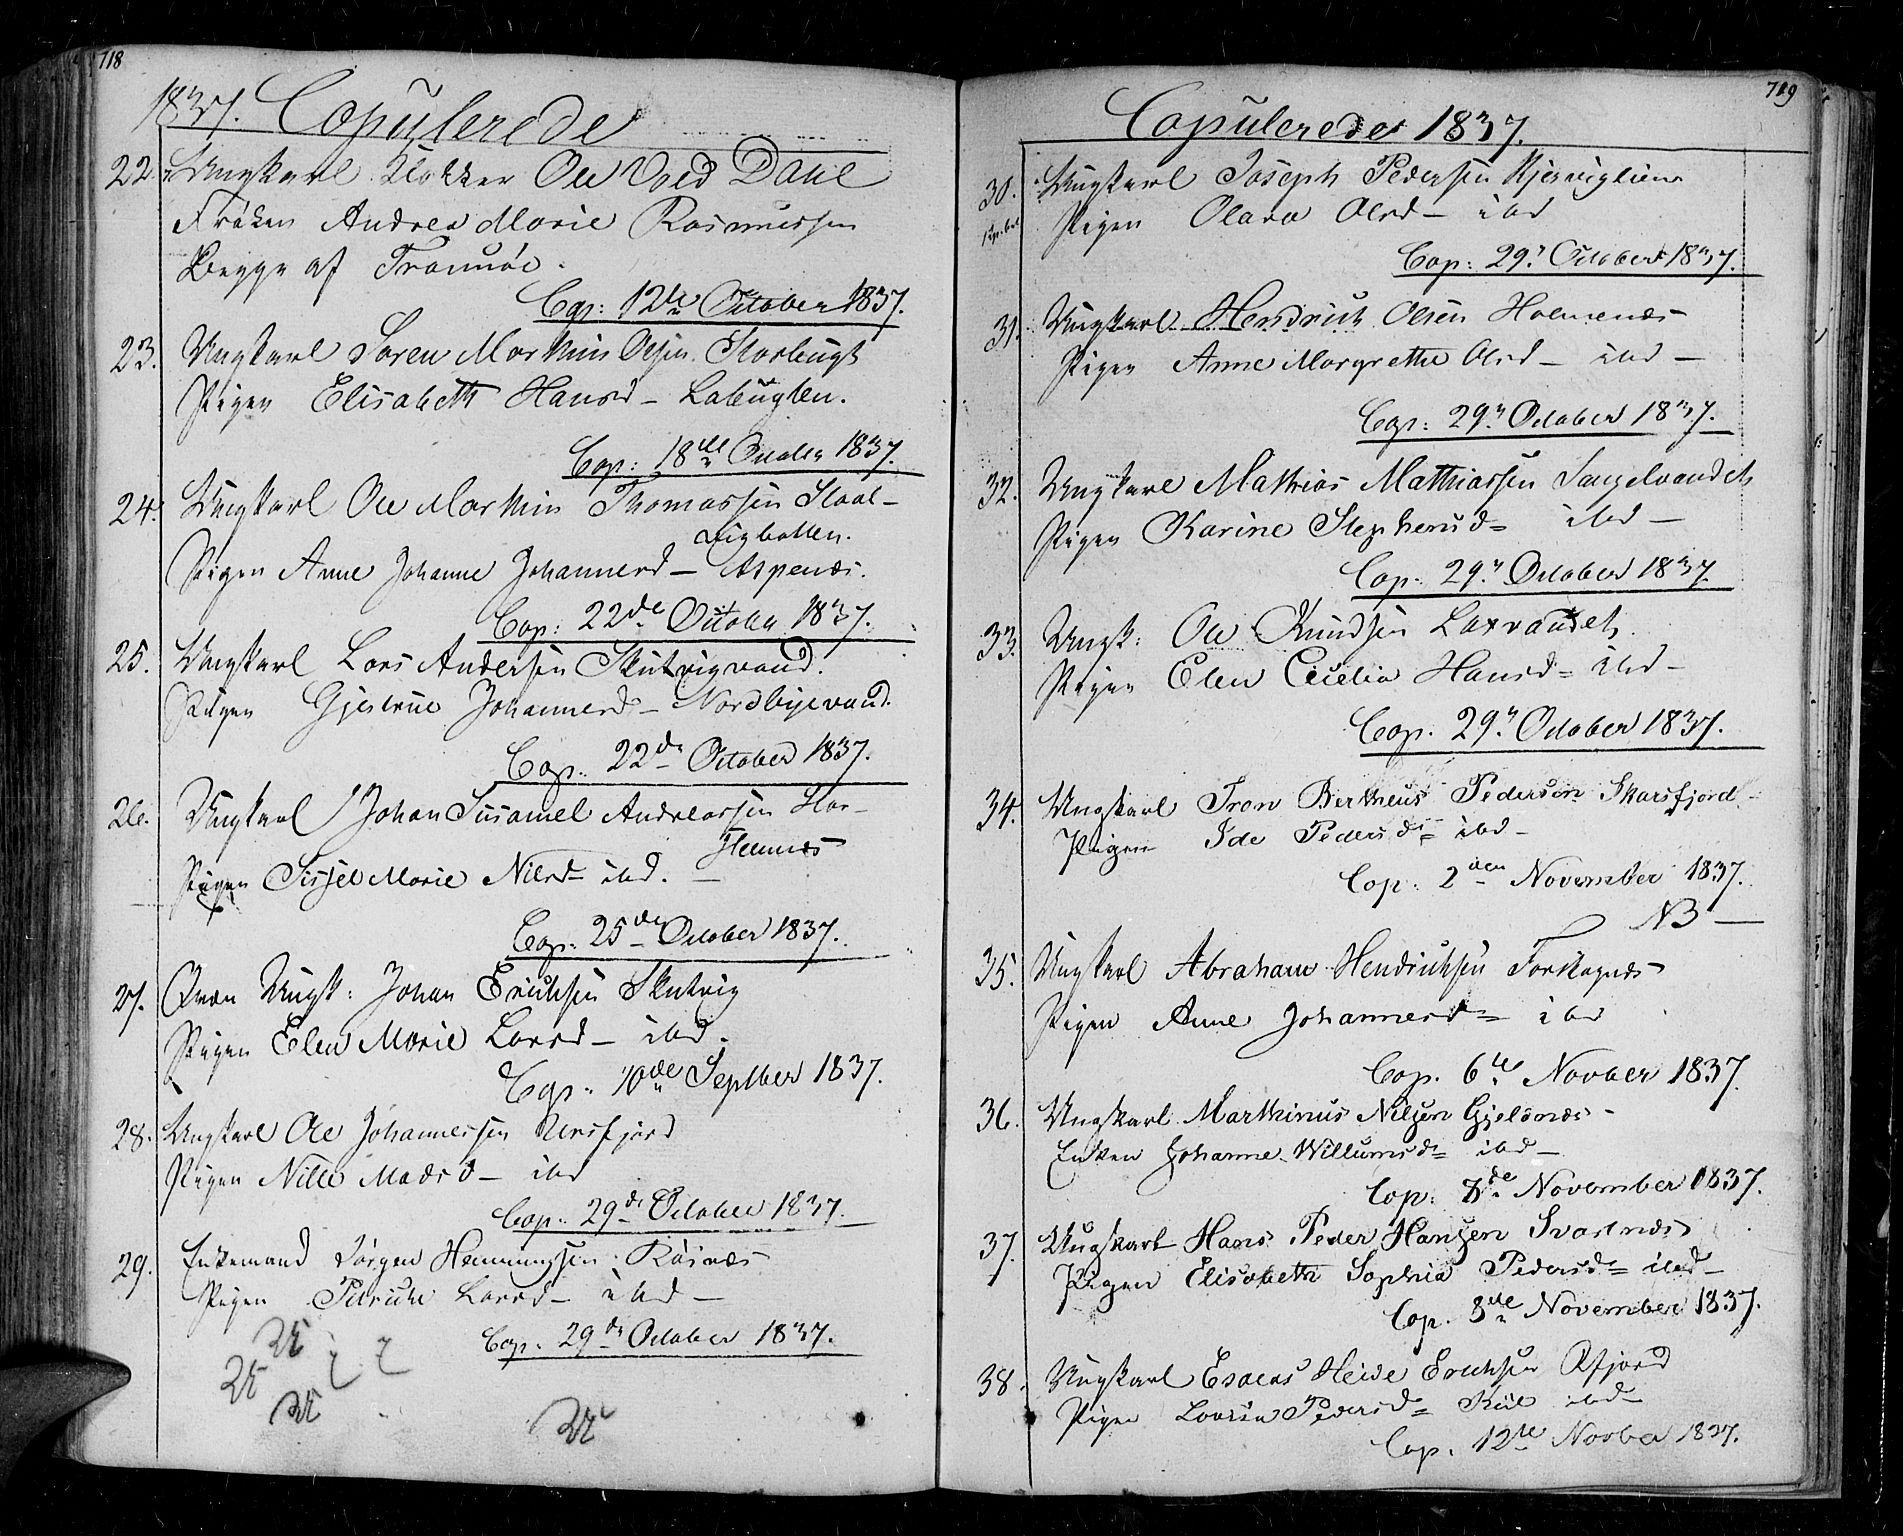 718
1837. Copulerede
22. Ungkarl Klokker Ole Void Dahl
Frøken Andrea Marie Rasmussen
Begge af Tromsöe.
Cop: 12te October 1837.
23. Ungkarl Søren Marthin Olsen
Pigen Elisabeth Hansd– Labugten.
Cop: 18de October 1837.
24. Ungkarl Ole Marthin Thomassen Staal–
vigbotten.
Pigen Anne Johanne Johannesd– Aspenæs.
Cop: 22de October 1837.
25. Ungkarl Lars Andersen Skutvigvand.
Pigen Gjertrue Johannesd– Nordbyevand.
Cop: 22de October 1837.
26. Ungkarl Johan Susamel Andreassen Stor–
Stennæs
Pigen Sissel Marie Nilsd– ibd. –
Cop: 25de October 1837.
27. Qvæn Ungk: Johan Erichsen Skutvig
Pigen Elen Marie Larsd– ibd.
Cop: 10de Septber 1837.
28. Ungkarl Ole Johannessen Ursfjord
Pigen Nille Madsd– ibd
Cop: 29de October 1837.
29. Enkemand Jørgen Henningsen Røsnæs
Pigen Larsd– ibd –
Cop. 29de October 1837.
719
Copulerede 1837.
30. Ungkarl Joseph Pedersen
Pigen Olava Olsd– ibd
Cop: 29. October 1837.
31. Ungkarl Hendrich Olsen Holmenæs
Pigen Anne Margrethe Olsd– ibd –
Cop: 29. October 1837.
32. Ungkarl Mathias Mathiassen Sangelvandet
Pigen Karine Stephensd= ibd –
Cop. 29. October 1837.
33. Ungk: Ole Knudsen Laxvandet.
Pigen Elen Cecelia Hansd= ibd –
Cop. 29. October 1837.
34. Ungkarl Tron Bertheus Pedersen Skarsfjord –
Pigen Ide Pedersd= ibd –
Cop: 2den November 1837.
NB –
35. Ungkarl Abraham Hendrichsen
Pigen Anne Johannesd= ibd
Cop. 6te Novber 1837.
36. Ungkarl Marthinus Nilsen Gjelsnæs –
Enken Johanne Willumsd= ibd –
Cop: 8de November 1837.
37. Ungkarl Hans Peder Hansen Svartnæs
Pigen Elisabeth Sophia Pedersd= ibd –
Cop. 8de November 1837.
38. Ungkarl Esaias Heide Erichsen
Pigen Lovisa Pedersd= ibd –
Cop. 12te Novber 1837.